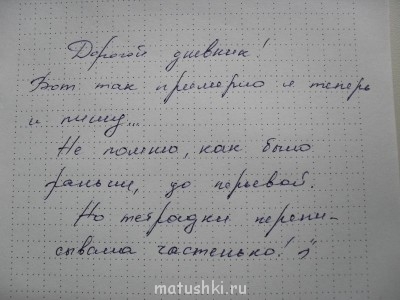 Дорогой дневник!
Вот так примерно я теперь
и пишу...
Не помню, как было
раньше, до перьевой.
Но тетрадки перепи-
сывала частенько!
matushki.ru